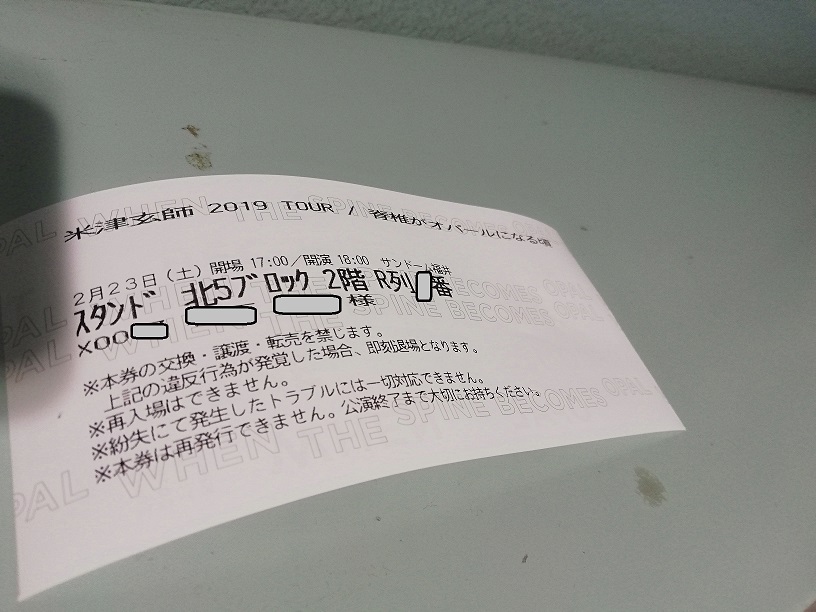 米津玄師 2019 TOUR / 脊椎がオパールになる頃
2月23日(土) 開場 17:00/開演 18:00 サンドーム福井
スタンド 北5ブロック 2階 R列 番
X00 様
※本券の交換・譲渡・転売を禁じます。
上記の違反行為が発覚した場合、即刻退場となります。
※再入場はできません。
※紛失にて発生したトラブルには一切対応できません。
※本券は再発行できません。公演終了まで大切にお持ちください。
WHEN THE SPINE BECOMES OPAL